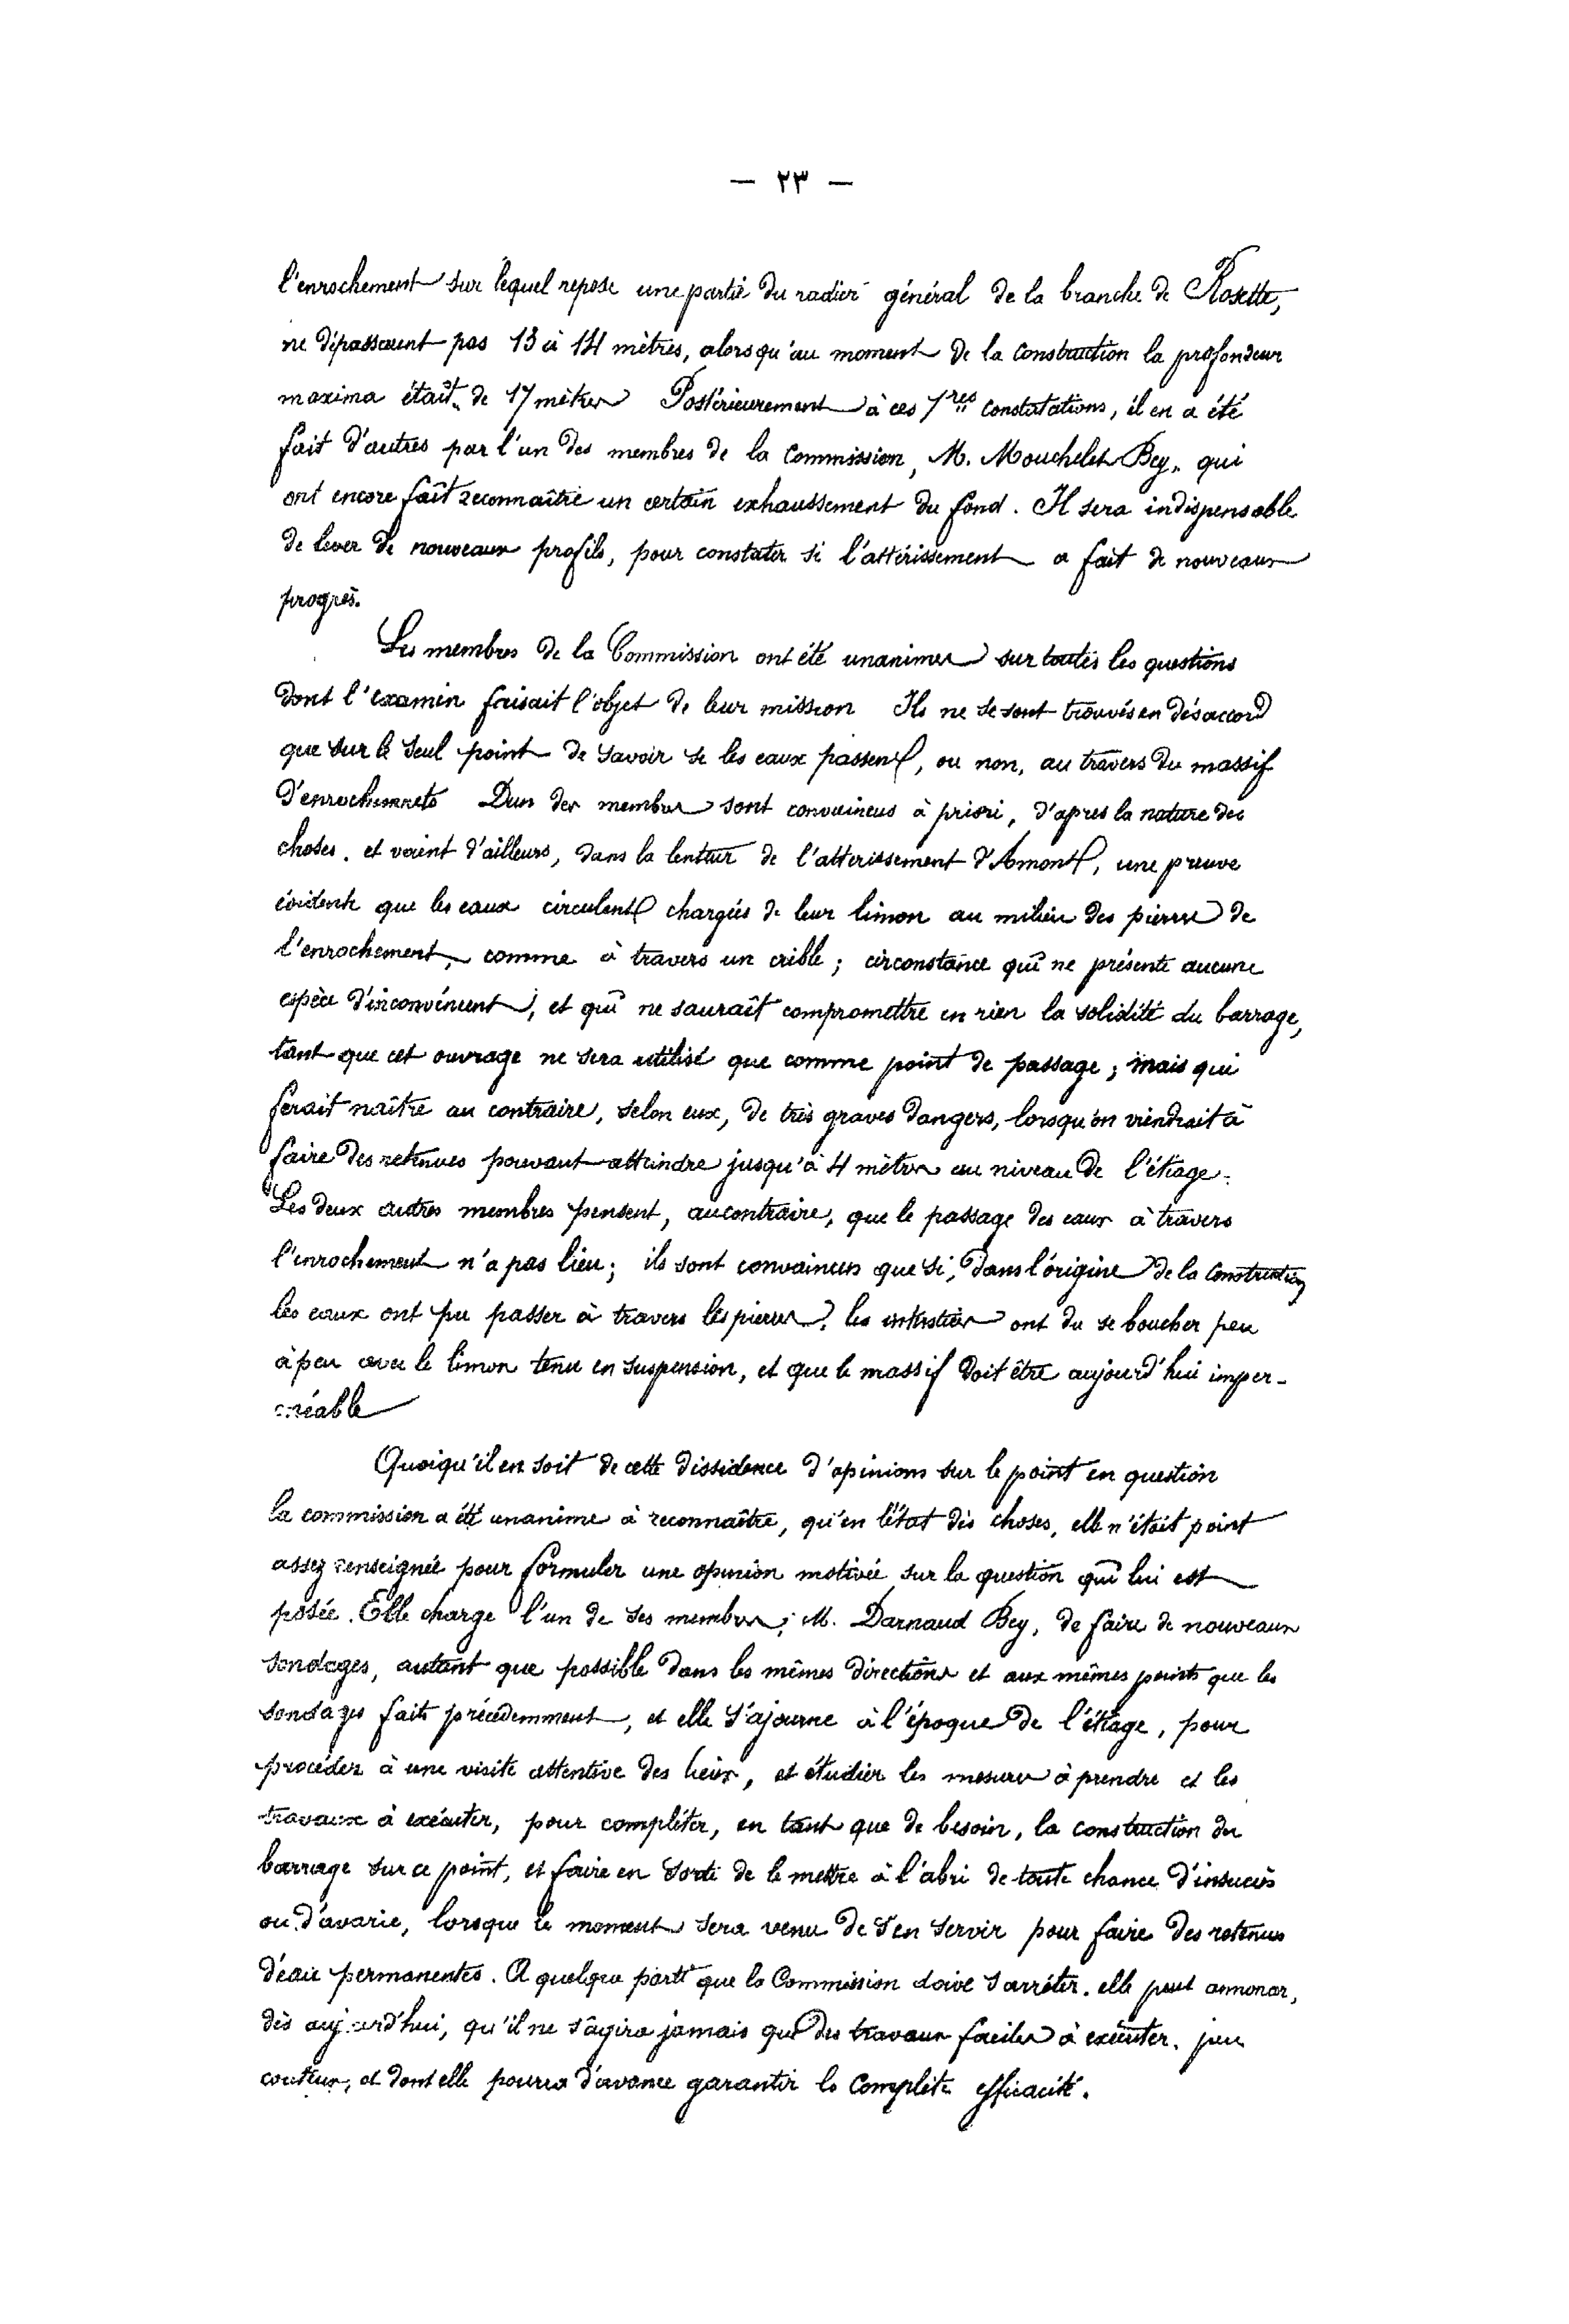 — ٢٣ —
l'enrochement sur lequel repose une partie du radier général de la branche de Rosette,
ne dépassaient pas 13 à 14 mètres, alorsqu'au moment de la construction la profondeur
maxima était de 17 mètres Postérieurement à ces 1res constatations, il en a été
fait d'autres par l'un des membres de la Commission, M. Mouchelet Bey, qui
ont encore fait reconnaître un certain exhaussement du fond. Il sera indispensable
de lever de nouveaux profils, pour constater si l'attérissement a fait de nouveaux
progrès.
Les membres de la Commission ont été unanimes sur toutes les questions
dont l'examen faisait l'objet de leur mission Ils ne se sont trouvés en désaccord
que sur le seul point de savoir se les eaux passent, ou non, au travers du massif
d'enrochements Deux des membres sont convaincus à priori, d'après la nature des
choses, et voient d'ailleurs, dans la lenteur de l'atterissement d'Amont, une preuve
évidente que les eaux circulent chargées de leur limon au milieu des pierres de
l'enrochement, comme à travers un crible; circonstance qui ne présente aucune
espèce d'inconvénient, et qui ne saurait compromettre en rien la solidité du barrage,
tant que cet ouvrage ne sera utilisé que comme point de passage; mais qui
ferait naître au contraire, selon eux, de très graves dangers, lorsqu'on viendrait à
faire des retenues pouvant atteindre jusqu'à 4 mètres au niveau de l'étiage.
Les deux autres membres pensent, au contraire, que le passage des eaux à travers
l'enrochement n'a pas lieu; ils sont convaincus que si, dans l'origine de la construction
les eaux ont pu passer à travers les pierres, les interstices ont du se boucher peu
à peu avec le limon tenu en suspension, et que le massif doit être aujourd'hui imper-
méable
Quoiqu'il en soit de cette dissidence d'opinions sur le point en question
la commission a été unanime à reconnaître, qu'en l'état des choses, elle n'était point
assez renseignée pour formuler une opinion motivée sur la question qui lui est
posée. Elle charge l'un de ses membres, M. Darnaud Bey, de faire de nouveaux
sondages, autant que possible dans les mêmes directions et aux mêmes points que les
sondages faits précédemment, et elle s'ajourne à l'époque de l'étiage, pour
procéder à une visite attentive des lieux, et étudier les mesures à prendre et les
travaux à exécuter, pour compléter, en tant que de besoin, la construction du
barrage sur ce point, et faire en sorte de le mettre à l'abri de toute chance d'insuccès
ou d'avarie, lorsque le moment sera venu de s'en servir pour faire des retenues
d'eau permanentes. A quelque parti que la Commission doive s'arrêter, elle peut annoncer,
dès aujourd'hui, qu'il ne s'agira jamais que des travaux faciles à exécuter, peu
couteux, et dont elle pourra d'avance garantir la complète efficacité.